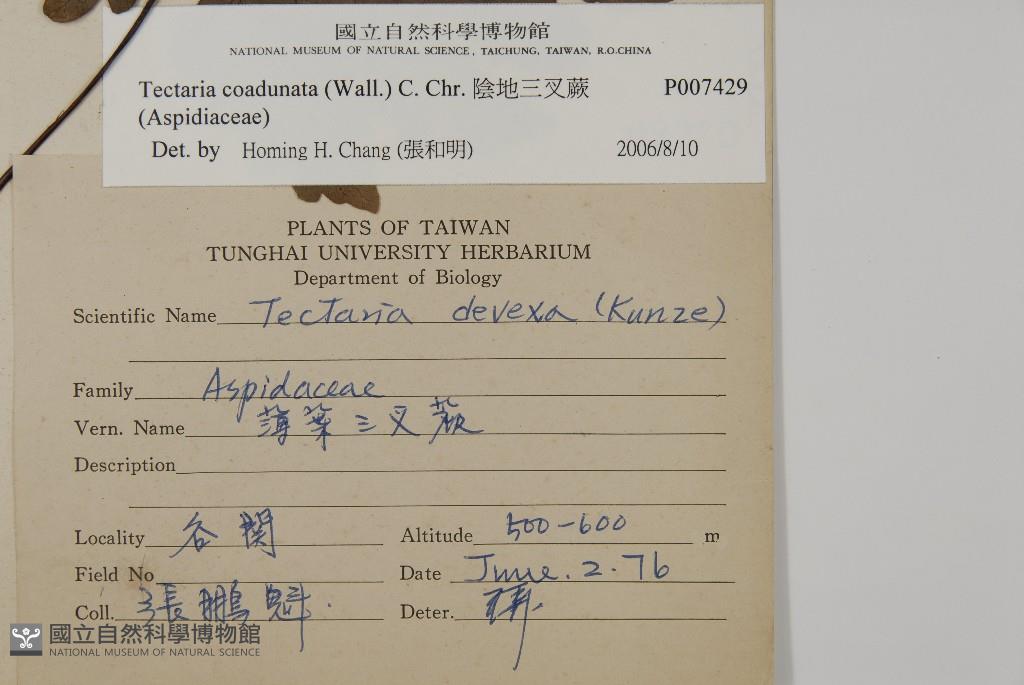 國立自然科學博物館
NATIONAL MUSEUM OF NATURAL SCIENCE, TAICHUNG, TAIWAN, R.O.CHINA
Tectaria coadunata (Wall.) C. Chr. 陰地三叉蕨 P007429
(Aspidiaceae)
Det. by Homing H. Chang (張和明) 2006/8/10
PLANTS OF TAIWAN
TUNGHAI UNIVERSITY HERBARIUM
Department of Biology
Scientific Name Tectaria devexa (Kunze)
Family Aspidaceae
Vern. Name 薄葉三叉蕨
Description
Locality 谷関 Altitude 500-600 m
Field No Date June. 2. 76
Coll. 張鵬魁. Deter.
國立自然科學博物館
NATIONAL MUSEUM OF NATURAL SCIENCE